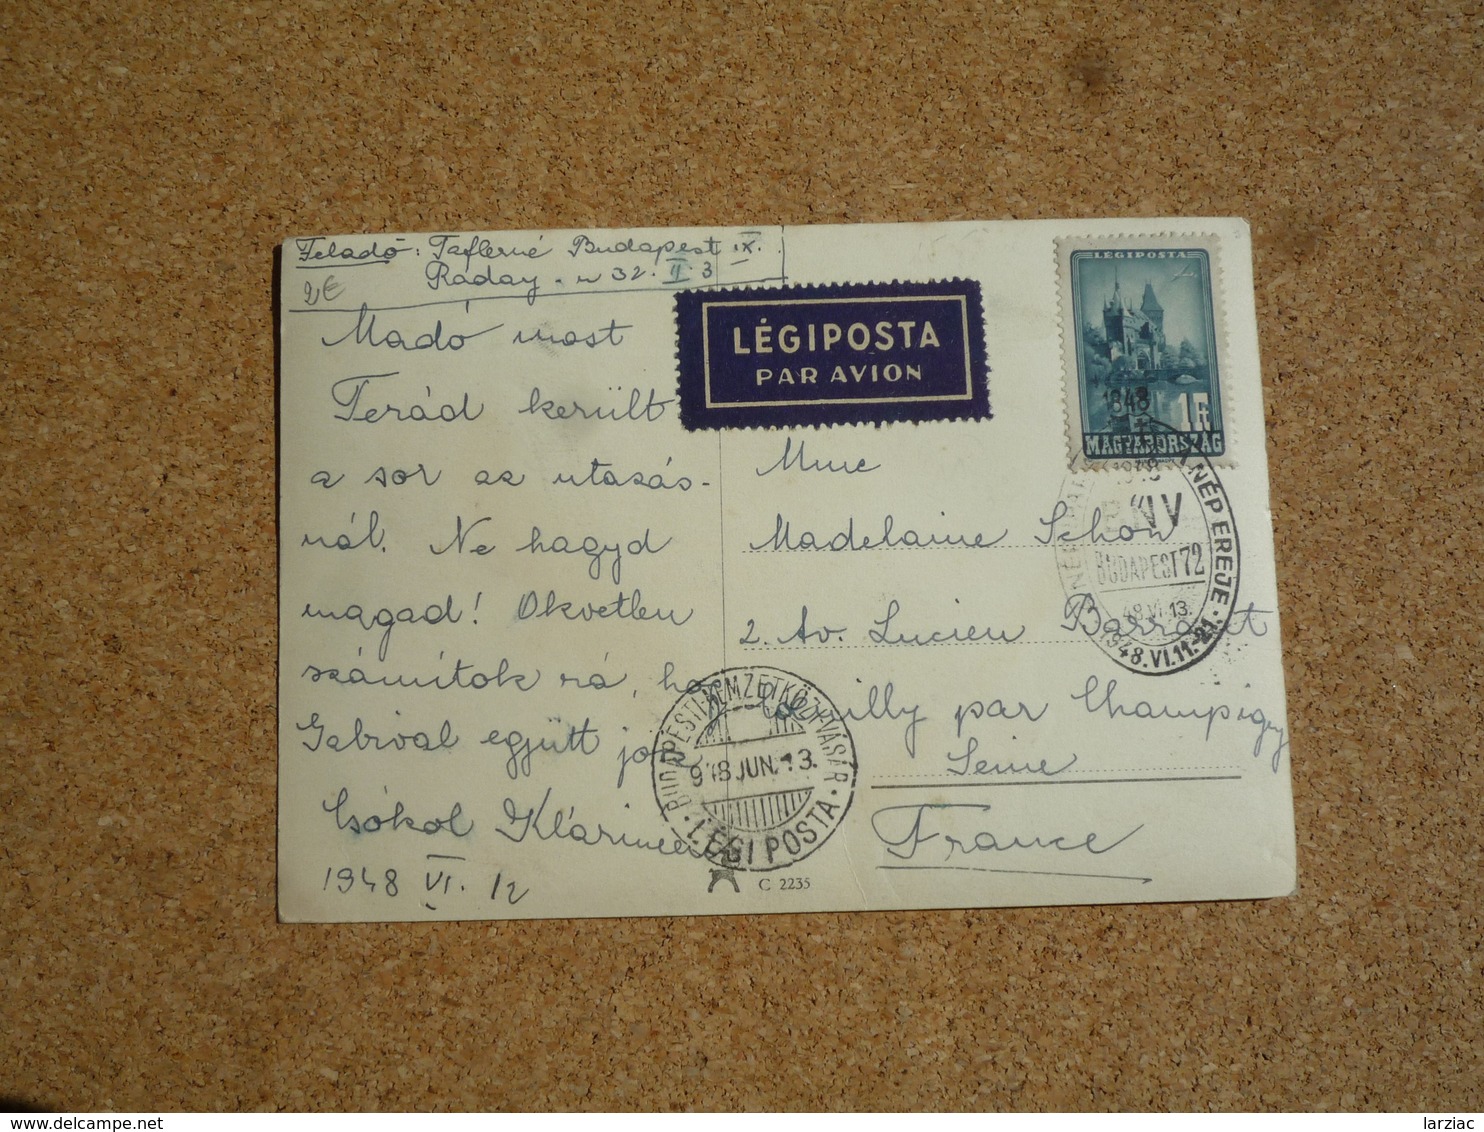 Feladó: Taflerné Budapest IX.
Ráday-u 32. II. 3
2€
Madó most
Terád került
a sor az utazás-
nál. Ne hagyd
magad! Okvetlen
számítok rá, ho
Gabival együtt jö
Csókol Klárimeri
1948 VI. 12
LÉGIPOSTA
PAR AVION
LÉGIPOSTA
1 Ft
MAGYARORSZÁG
Mme
Madelaine Schon
2. Av. Lucien
illy par Champigny
Seine
France
1848
1948
NÉP EREJE
BUDAPEST 72
48.VI.13.
1948.VI.11-21.
BUDAPESTI NEMZETKÖZI VÁSÁR
948 JUN. 13.
LÉGI POSTA
C 2235
larziac